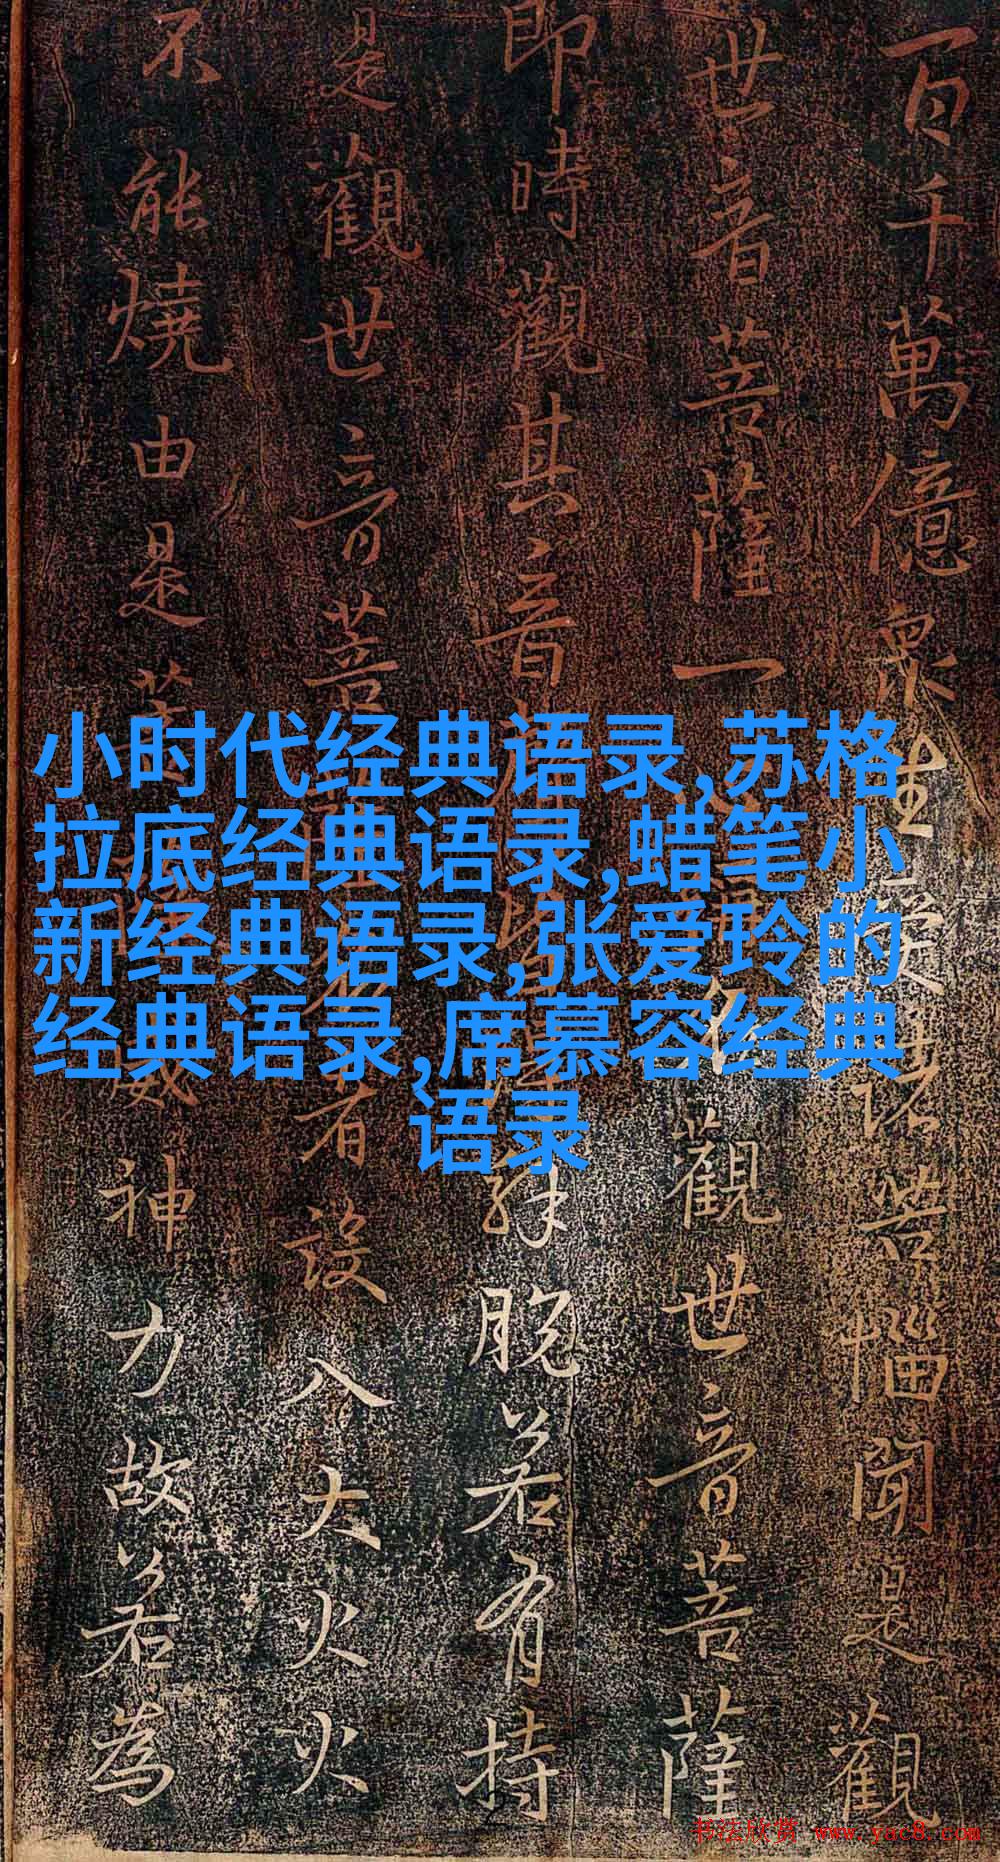 小时代经典语录,苏格
拉底经典语录,蜡笔小
新经典语录,张爱玲的
经典语录,席慕容经典
语录
百千萬億眾生受諸苦惱聞是觀
世音菩薩一名觀世音菩薩
即時觀其音皆解脫若有持
是觀世音菩名者設入大火火
不能燒由是菩威神力故若為
书法欣赏 www.yac8.com